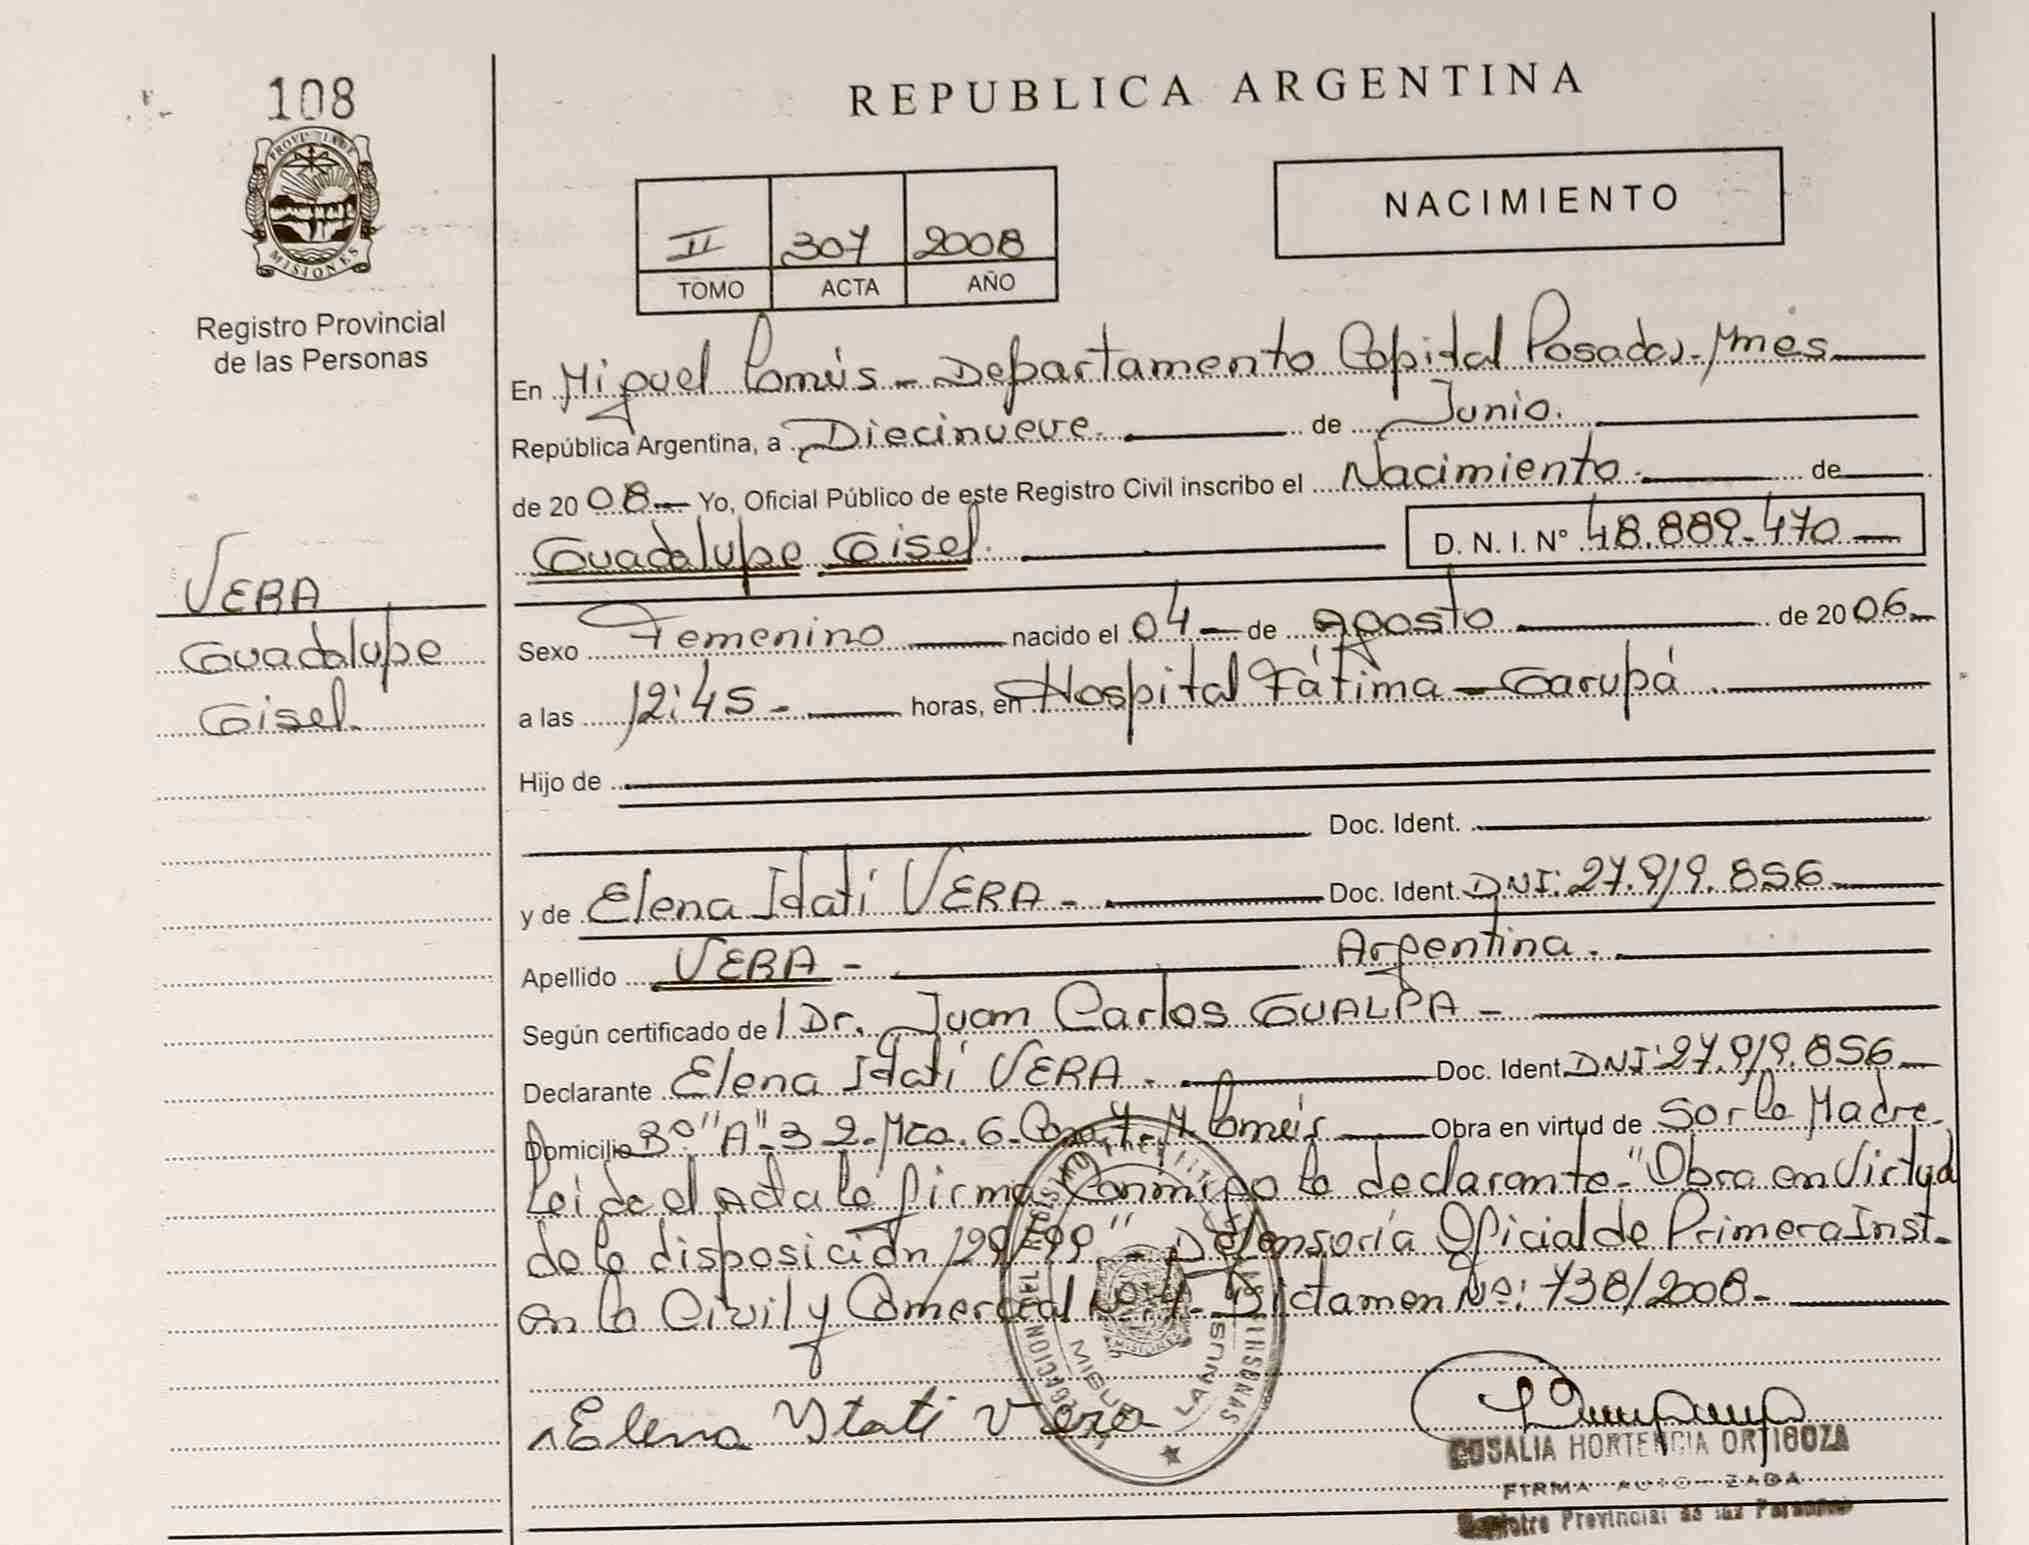 108
PROVINCIA DE
MISIONES
Registro Provincial
de las Personas
VERA
Guadalupe
Gisel.
REPUBLICA ARGENTINA
NACIMIENTO
II 307 2008
TOMO ACTA AÑO
En Miguel Lanús - Departamento Capital Posadas - Mnes
República Argentina, a Diecinueve. de Junio.
de 2008 Yo, Oficial Público de este Registro Civil inscribo el Nacimiento. de
Guadalupe Gisel. D. N. I. N° 48.889.470
Sexo Femenino nacido el 04 de agosto de 2006
a las 12:45 - horas, en Hospital Fátima - Garupá.
Hijo de
Doc. Ident.
y de Elena Itatí VERA - Doc. Ident. DNI: 27.919.856
Apellido VERA - Argentina.
Según certificado de / Dr. Juan Carlos GUALPA -
Declarante Elena Itatí VERA. Doc. Ident. DNI: 27.919.856
Domicilio B° "A" 3 2. Mza. 6. Casa 7. M Lanús Obra en virtud de Ser la Madre.
Leída el Acta la firma conmigo la declarante - "Obra en Virtud
de la disposición 199/99" - Defensoría Oficial de Primera Inst.
en lo Civil y Comercial N° 4 - Dictamen N°: 738/2008 -
Elena Ytati Vera
MIGUEL LANUS
MISIONES
ROSALIA HORTENCIA ORTIGOZA
FIRMA AUTORIZADA
Registro Provincial de las Personas